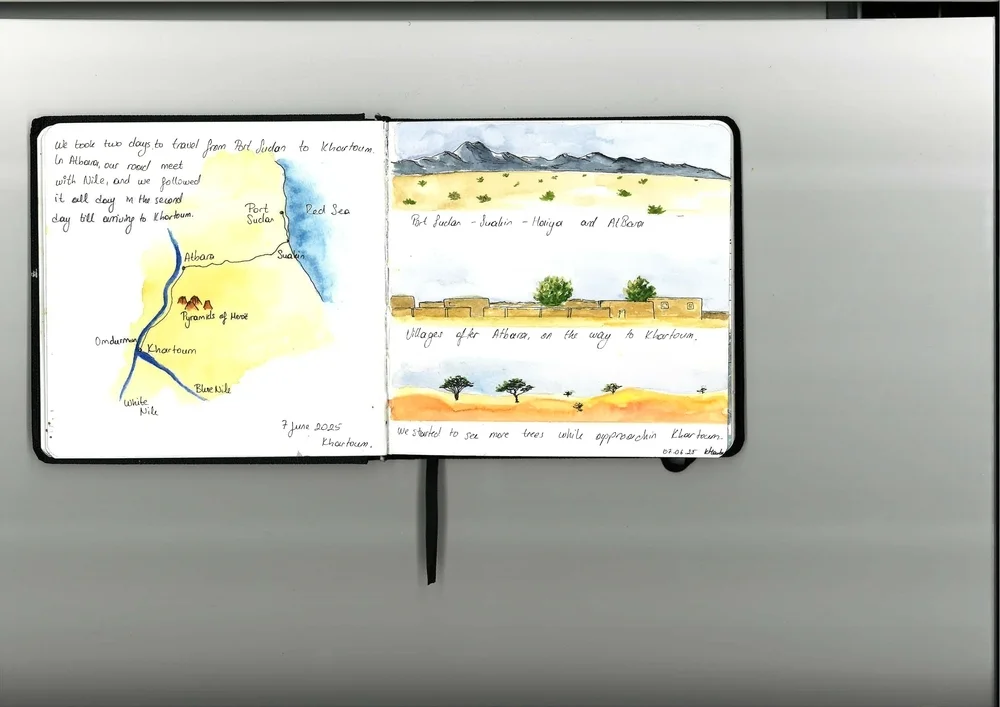 We took two days to travel from Port Sudan to Khartoum.
In Atbara, our road meet
with Nile, and we followed
it all day in the second
day till arriving to Khartoum.
Port
Sudan
Red Sea
Suakin
Atbara
Pyramids of Meroë
Omdurman
Khartoum
Blue Nile
White
Nile
7 June 2025
Khartoum.
Port Sudan - Suakin - Haiya and AlBara
Villages after Atbara, on the way to Khartoum.
We started to see more trees while approachin Khartoum.
07.06.25